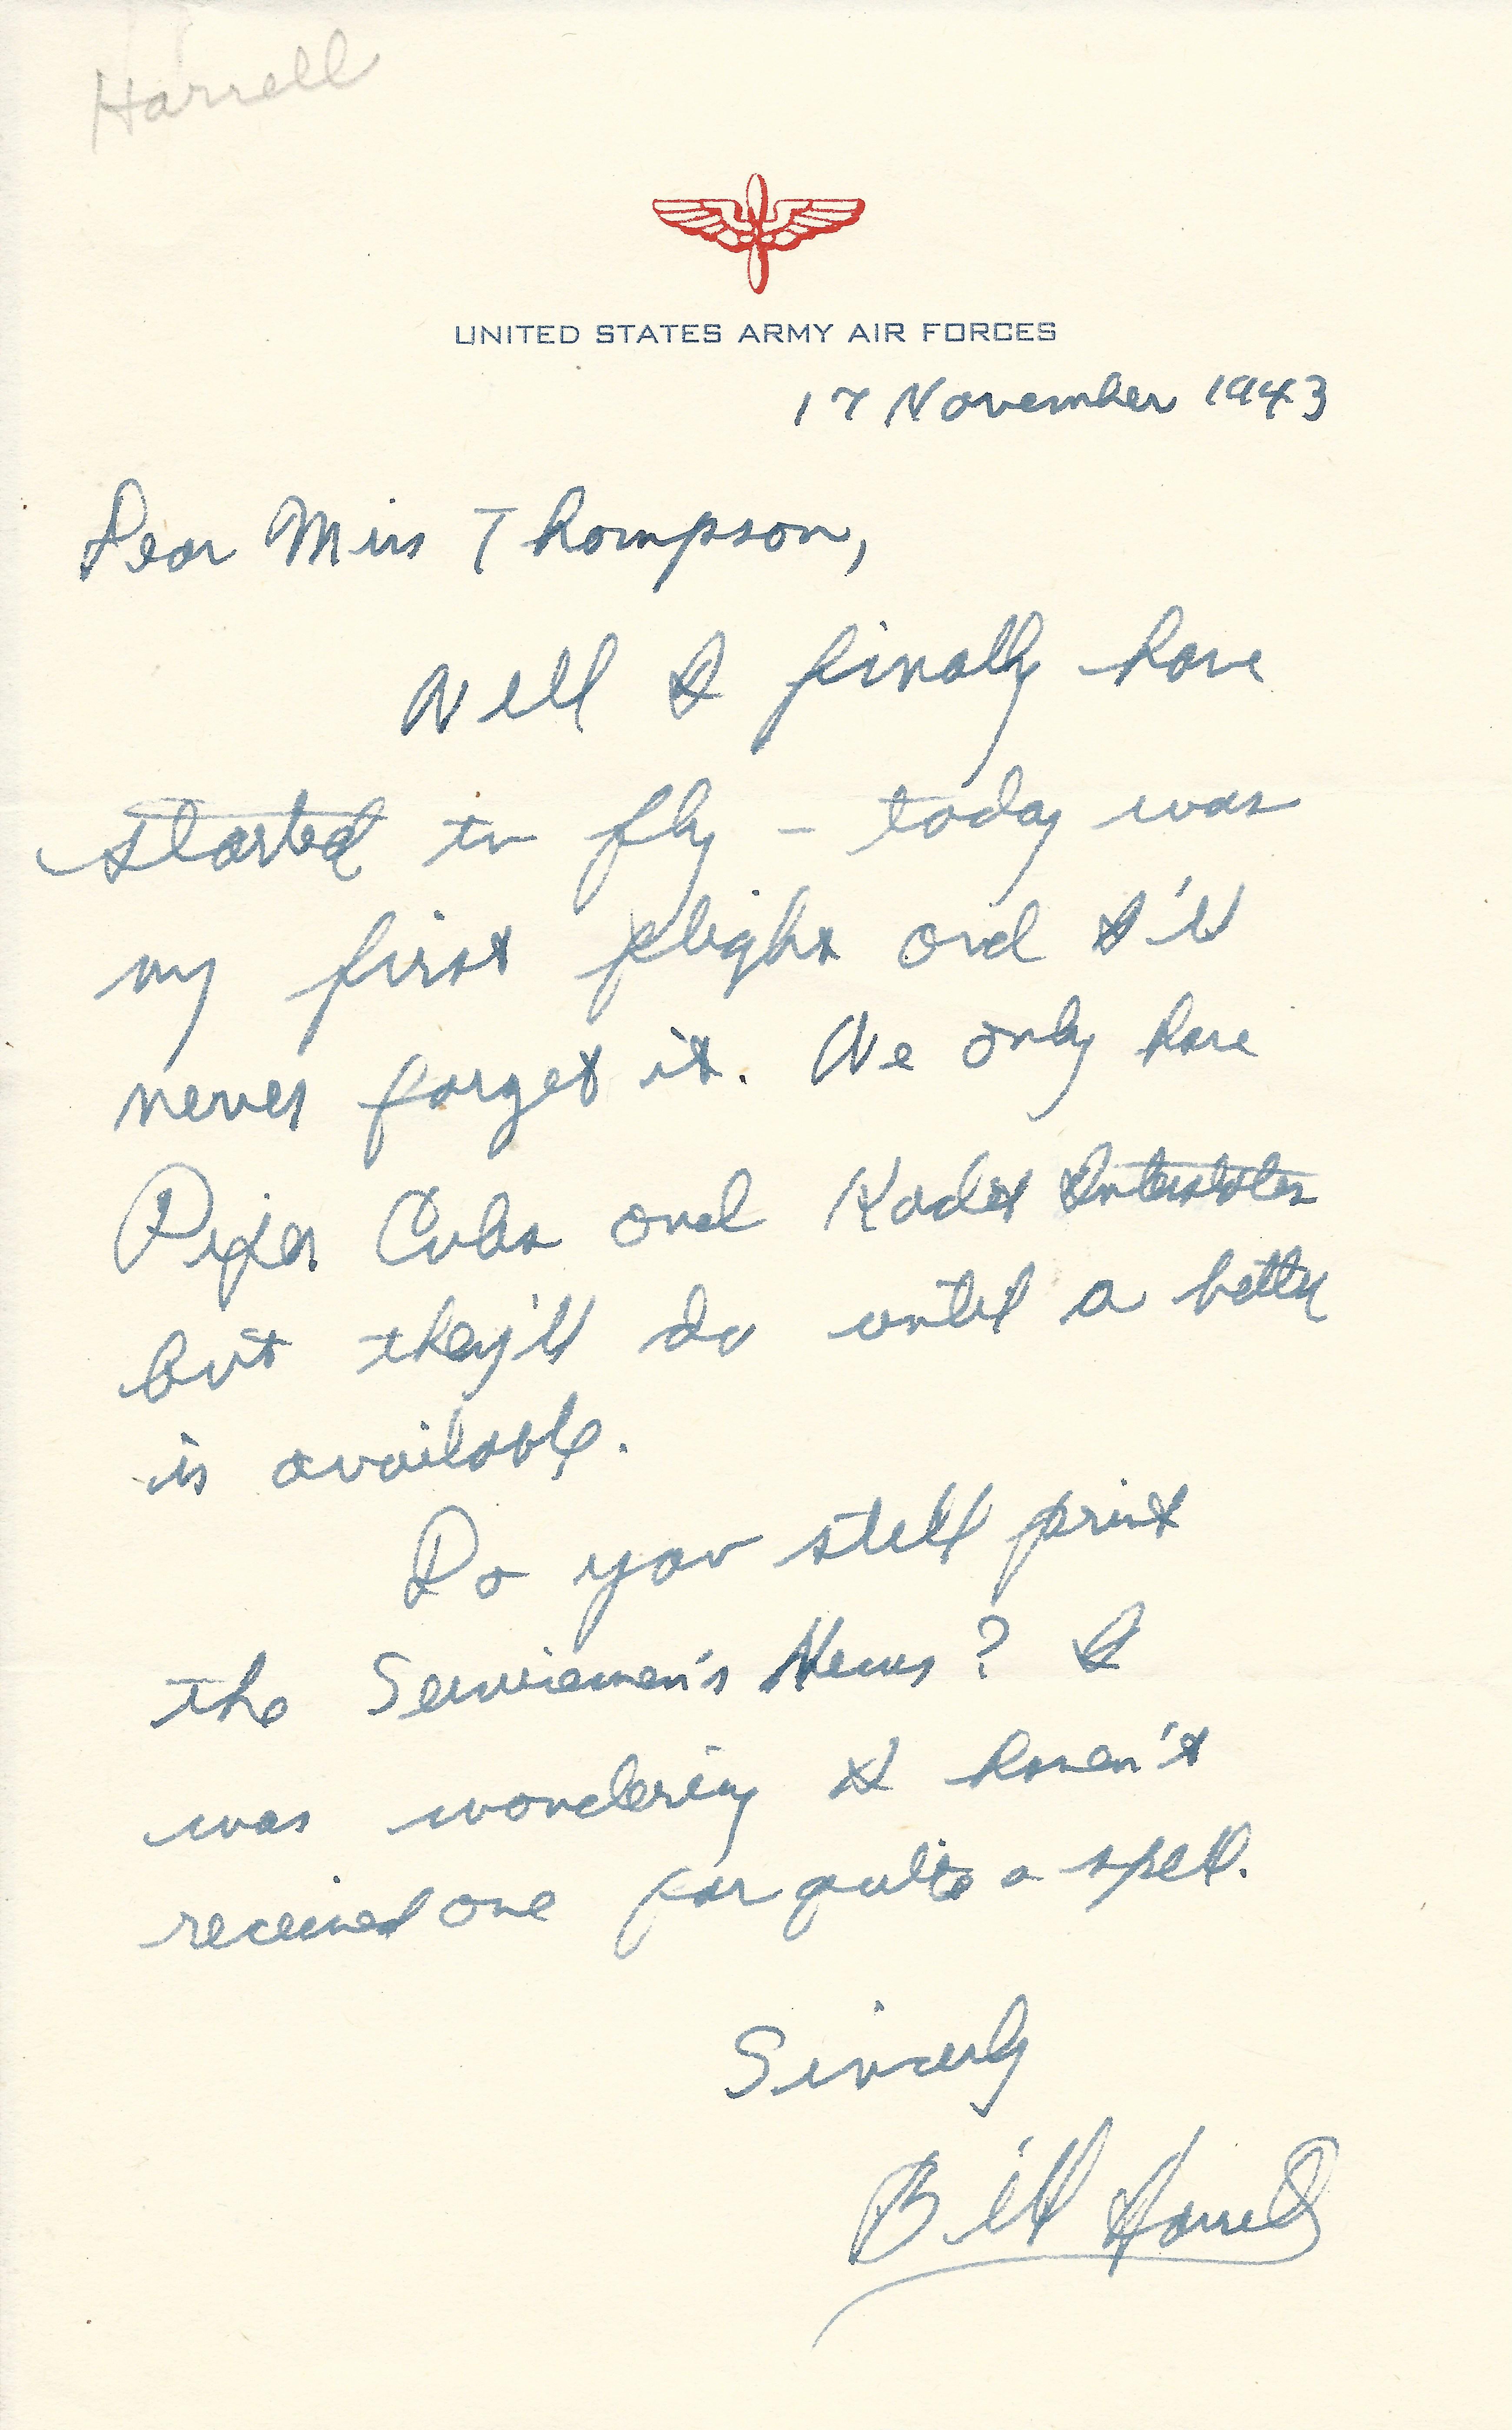 Harrell
UNITED STATES ARMY AIR FORCES
17 November 1943
Dear Miss Thompson,
Well I finally have
started to fly - today was
my first flight and I'll
never forget it. We only have
Piper Cubs and Kadet Interstates
but they'll do until a better
is available.
Do you still print
the Servicemen's News? I
was wondering I haven't
received one for quite a spell.
Sincerly
Bill Harrell